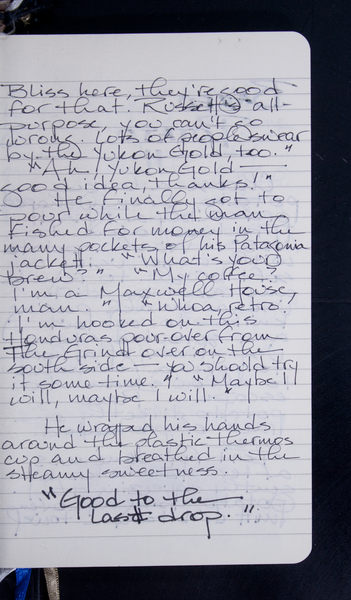 Bliss here, they're good
for that. Russet's all-
purpose, you can't go
wrong. Lots of people swear
by the Yukon Gold, too."
"Ah! Yukon Gold —
good idea, thanks!"
He finally got to
pour while the man
fished for money in the
many pockets of his Patagonia
jacket. "What's your
brew?" "My coffee?
I'm a Maxwell House
man." "Whoa, retro!
I'm hooked on this
Honduras pour-over from
The Grind over on the
south side — you should try
it some time." "Maybe I
will, maybe I will."
He wrapped his hands
around the plastic thermos
cup and breathed in the
steamy sweetness.
"Good to the
last drop."